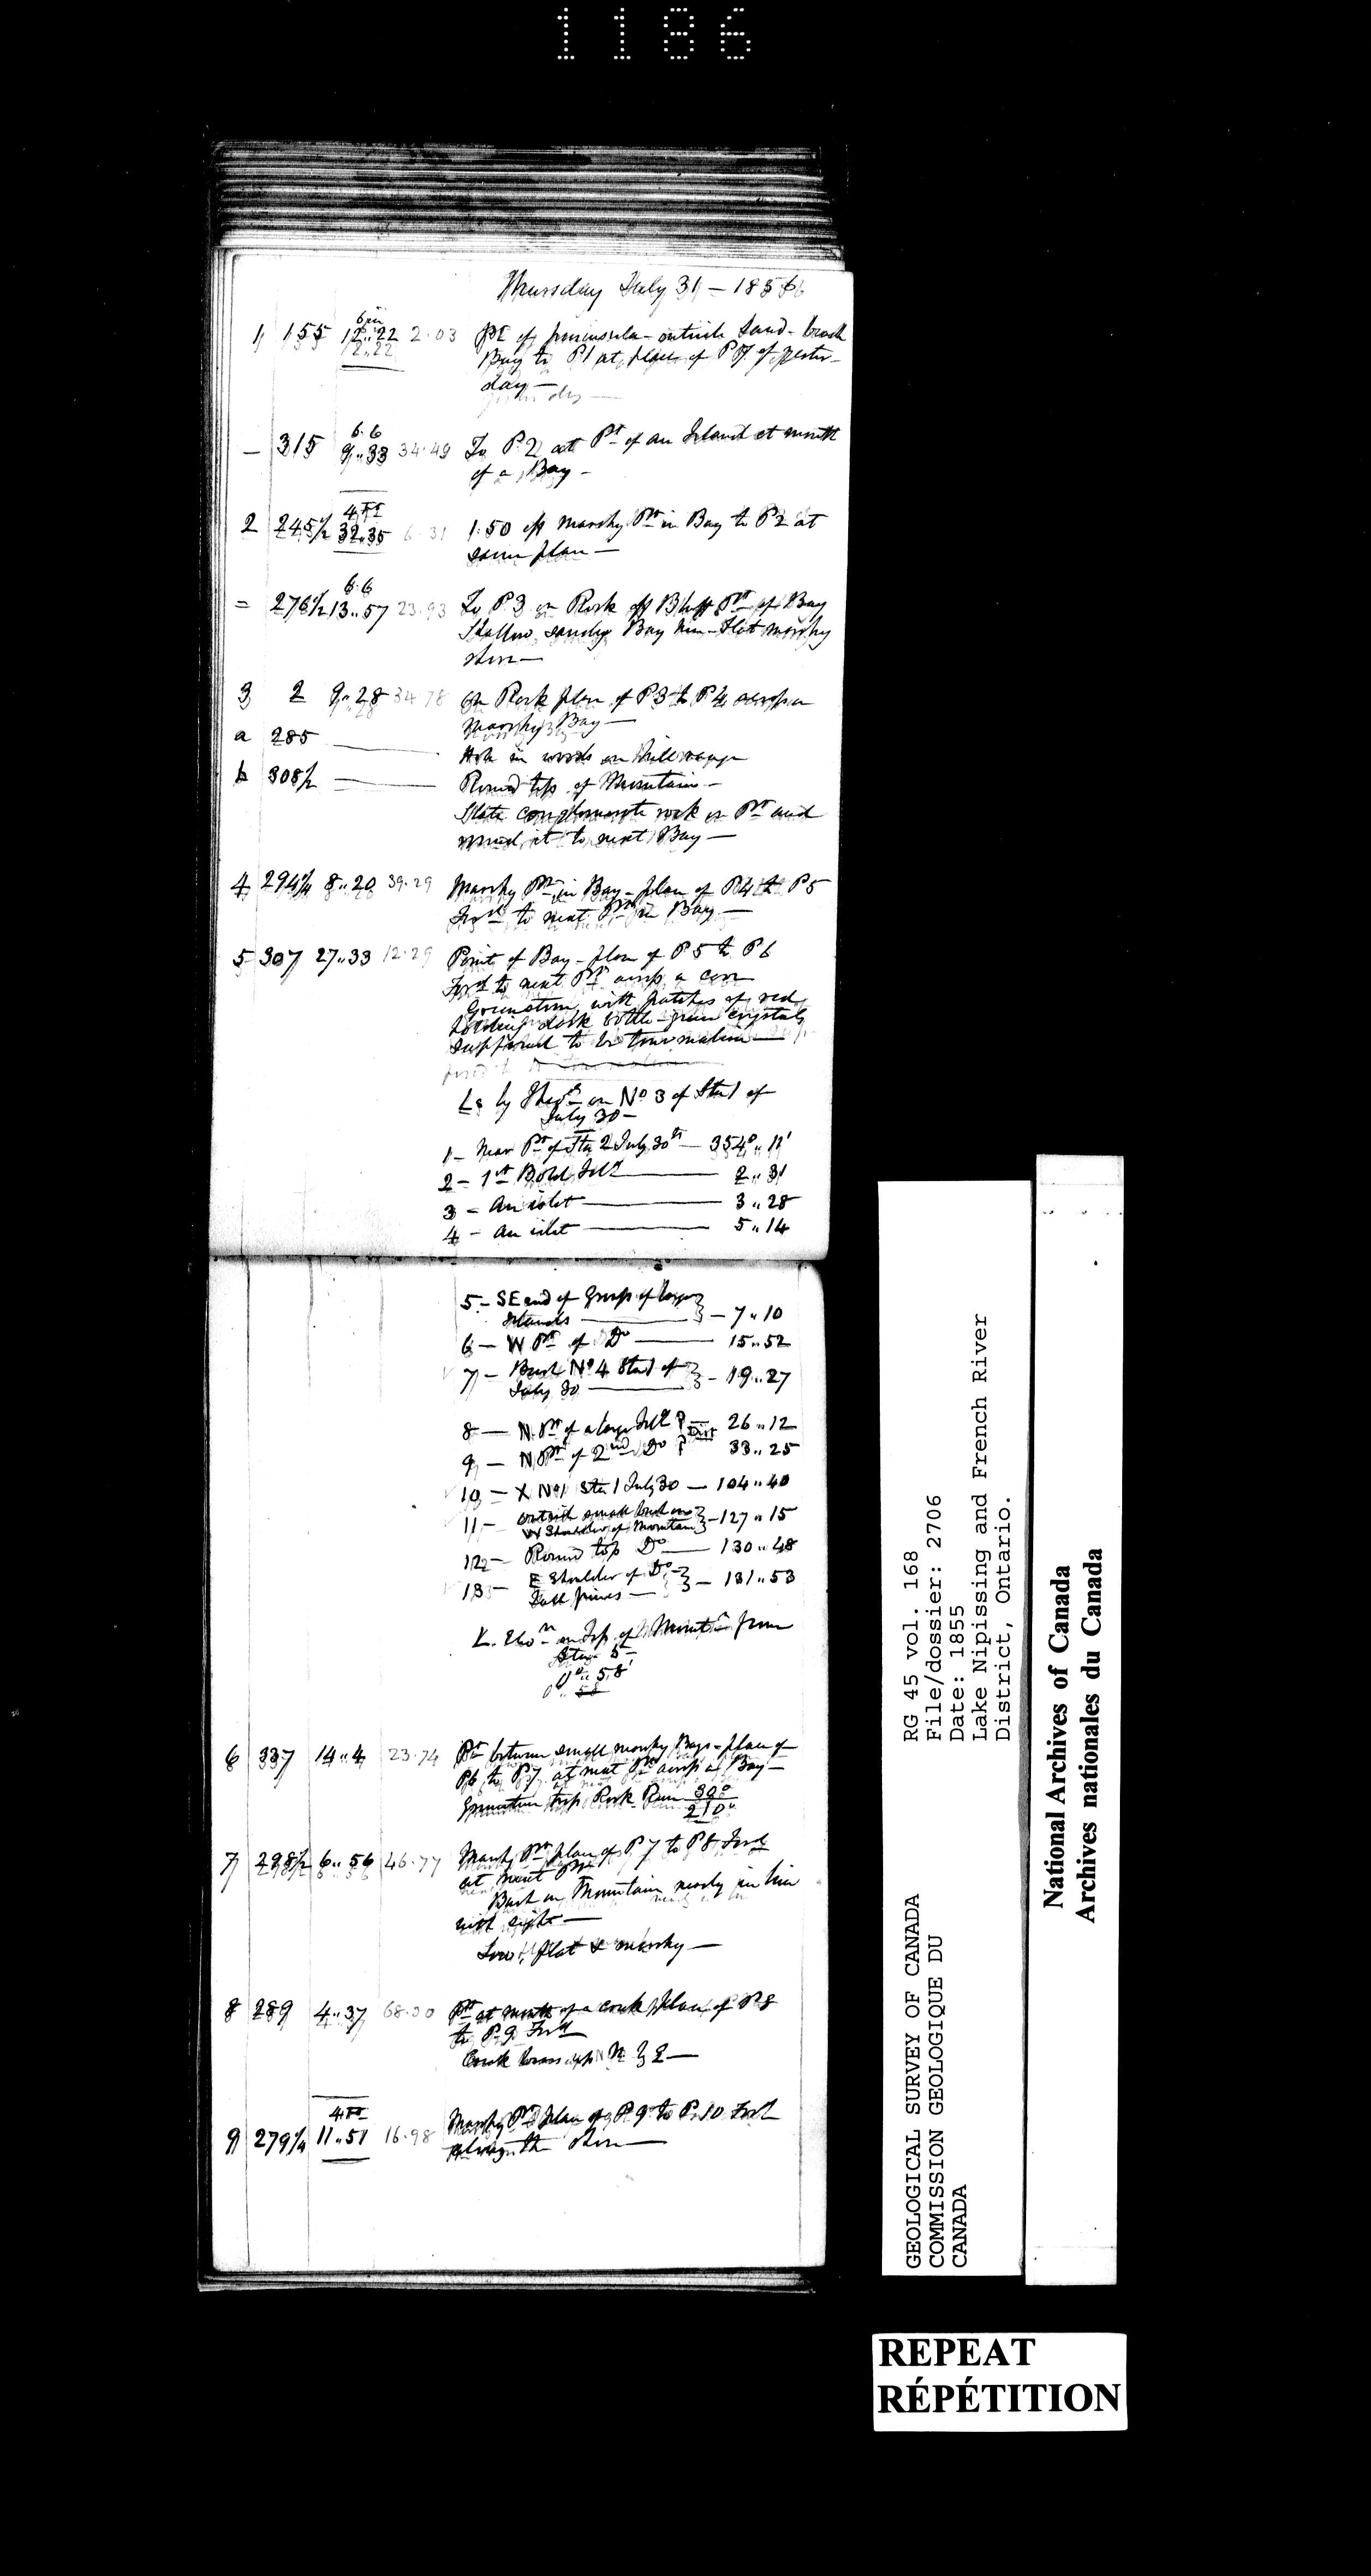 1186
Thursday July 31 — 1856
6 in
1 155 12..22 2.03 Pt of peninsula - outside Sand-beach
12.22
Bay to P1 at place of P of yester-
day —
6.6
— 315 9..33 34.49 To P.2 at Pt of an Island at mouth
of a Bay —
4 Ft
2 245½ 32..35 6.31 1.50 off marshy Pt in Bay to P2 at
same place —
6.6
= 276½ 13..57 23.93 To P.3 on Rock off Bluff Pt of Bay
Shallow sandy Bay here - flat marshy
shore —
3 2 9..28 34.78 On Rock place of P3 to P4 across a
Marshy Bay —
a 285 Hole in woods on hill range
b 308½ Round top of Mountain —
Slate conglomerate rock on Pt and
round it to next Bay —
4 294¼ 8..20 39.29 Marshy Pt in Bay - place of P4 to P5
Ford to next Pt in Bay —
5 307 27..33 12.29 Point of Bay - place of P5 to P6
Ford to next Pt across a cove
Greenstone with patches of red
holding dark bottle-green crystals
supposed to be tourmaline —
Ls by Theod on No 3 of Sta 1 of
July 30 —
1 — Near Pt of Sta 2 July 30th — 354°..11'
2 — 1st Bold Isld — 2..31
3 — An islet — 3..28
4 — An islet — 5..14
5 — SE end of Group of large
Islands — 7..10
6 — W Pt of Do — 15..52
7 — Bush No 4 Sta 1 of
July 30 — 19..27
8 — N. Pt of a large Isld — 26..12
9 — N Pt of 2nd Do 33..25
10 — X No 1 Sta 1 July 30 — 104..40
11 — outside small bush on
W Shoulder of Mountain — 127..15
12 — Round top Do — 130..48
13 — E Shoulder of Do
Tall pines — 131..53
L. Elvn on top of Mountn from
Sta. 5 —
0°..58'
0..58
6 337 14..4 23.74 Pt between small marshy Bays - place of
P6 to P7 at next Pt across a Bay —
Greenstone trap Rock Run 30°
210°
7 298½ 6..56 46.77 Marshy Pt place of P7 to P8 Ford
at next Pt
Bush on Mountain nearly in line
with sight —
Low, flat & marshy —
8 289 4..37 68.30 Pt at mouth of a creek place of P8
to P.9 Ford
Creek bears up N. E —
4 Ft
9 279¼ 11..51 16.98 Marshy Pt place of P9 to P.10 Ford
along the shore —
GEOLOGICAL SURVEY OF CANADA
COMMISSION GEOLOGIQUE DU
CANADA
RG 45 vol. 168
File/dossier: 2706
Date: 1855
Lake Nipissing and French River
District, Ontario.
National Archives of Canada
Archives nationales du Canada
REPEAT
RÉPÉTITION